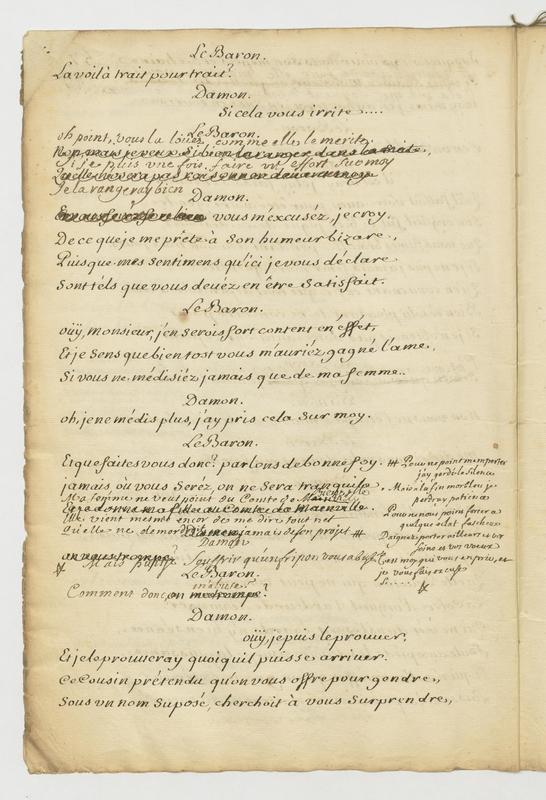 Le Baron.
La voilà trait pour trait.
Damon.
Si cela vous irrite .....
Le Baron.
oh point, vous la louez comme elle le merite,
si je puis une fois faire vn effort sur moy
Je la rangeray bien
Damon.
vous m'excuséz, je croy.
De ce que je me prête à son humeur bizare,
Puisque mes sentimens qu'ici je vous déclare
sont téls que vous devéz en être satisfait.
Le Baron.
oüy, monsieur, j'en serois fort content en éffét,
Et je sens que bien tost vous m'auriéz gagné l'ame,
Si vous ne médisiéz jamais que de ma femme.
Damon.
oh, je ne médis plus, j'ay pris cela sur moy.
Le Baron.
Et que faites vous donc? parlons de bonne foy.
jamais où vous seréz, on ne sera tranquile
Ma femme ne veut point du Comte de
Et je donne ma fille au Comte de Mainville.
Elle vient mesme encor de me dire tout net
Qu'elle ne demordra jamais de son projet #
Damon
Mais Souffrir qu'un fripon vous abuse
Le Baron.
Comment donc, on m'abuse?
Damon.
oüy, je puis le prouver.
Et je le prouveray quoiqu'il puisse arriver.
Ce Cousin prétendu qu'on vous offre pour gendre,
Sous vn nom suposé, cherchoit à vous surprendre,
# Pour ne point m'emporter
j'ay gardé le silence
Mais à la fin morbleu je
perdray patience
Pour ne nous point forcer a
quelque éclat facheux
Daignez porter ailleurs et vos
soins et vos voeux
C'est moy qui vous en prie, et
je vous fais excuse
Si .....